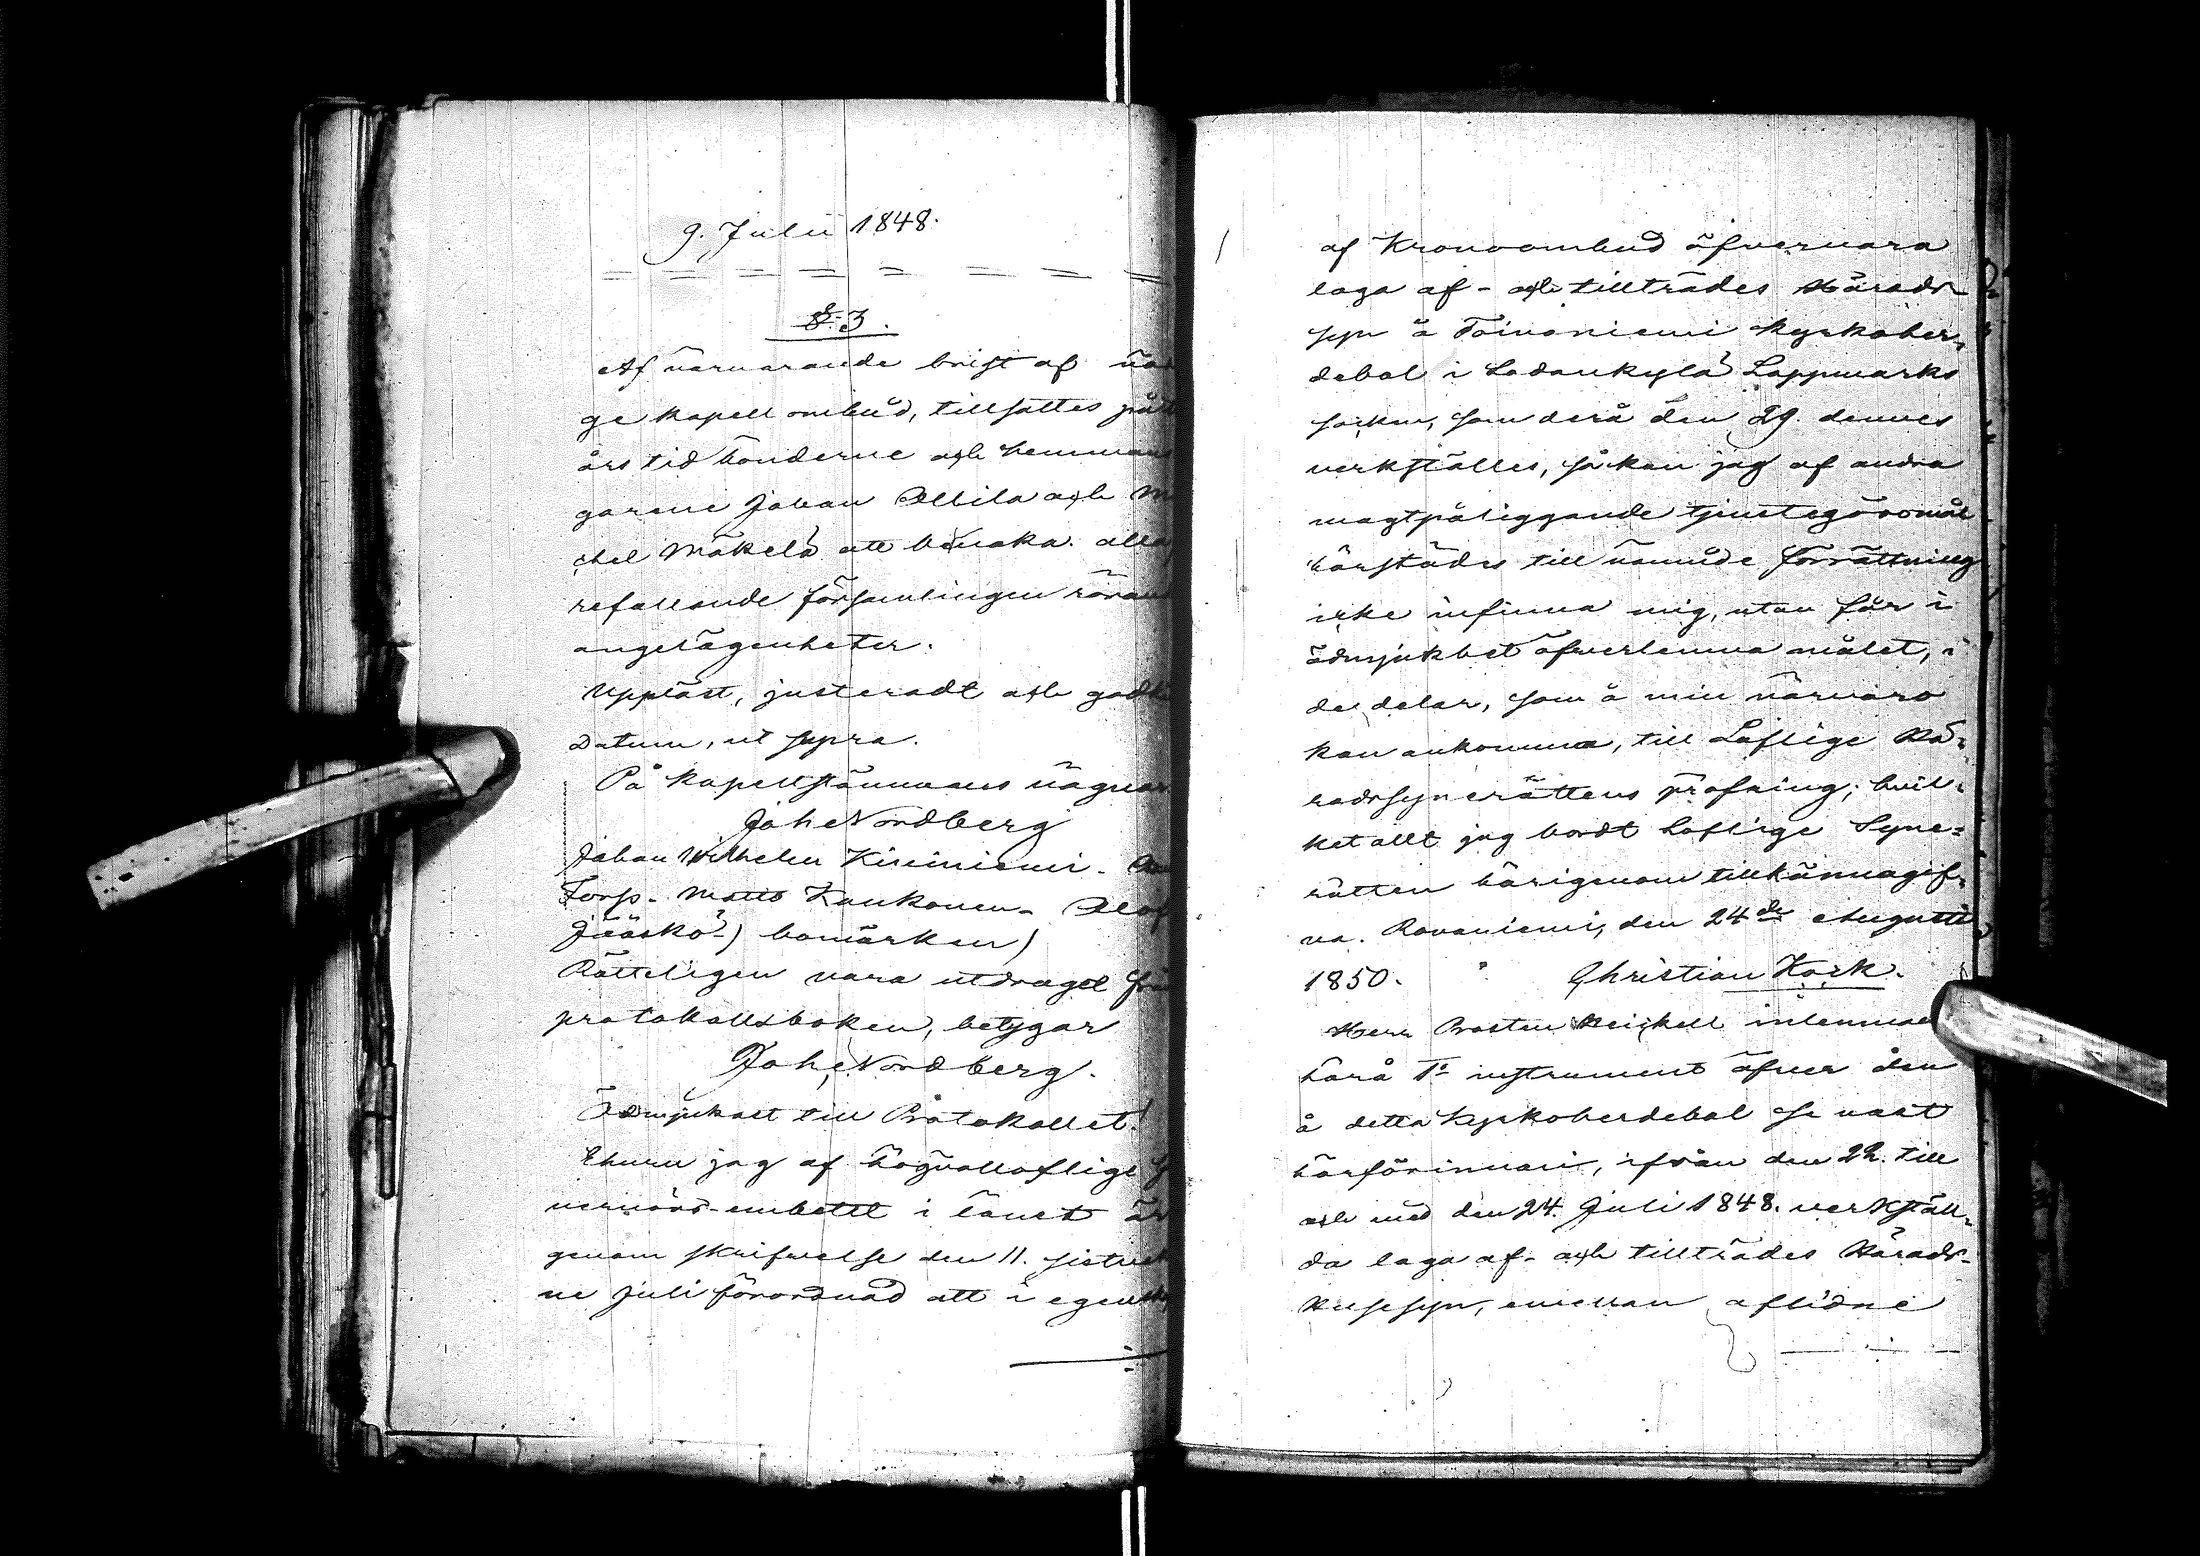 9. Julii 1848.
§ 3.
Af närvarande brist af
ge kapell ombud, tillsattes på
års tid bönderne och hemman
garene Johan Ollila och Mi
chel Mäkelä att bevaka alla
refallande församlingen röran
angelägenheter.
Uppläst, justeradt och godk
Datum, ut supra.
På Kapellstämmans vägnar
Joh. Nordberg
Johan Wilhelm Kiviniemi.
Torp. Matts Kaukonen. Olof
Jääskö) bomärken)
Rätteligen vara utdraget från
protokollsboken, betygar
Joh. Nordberg.
Ödmjukast till Protokollet!
Ehuru jag af högvälloflige G
vernörs-embetet i länet är
genom skrifvelse den 11. sistvek
ne Juli förordnad att i egensk
af Kronoombud öfvervara
laga af- och tillträdes Härads-
syn å Toivoniemi Kyrkoher-
debol i Sodankylä Lappmarks
socken, som derå den 29. dennes
verkställes, så kan jag af andra
magtpåliggande tjenstegöromål
härstädes till nämnde förrättning
icke infinna mig, utan får i
ödmjukhet öfverlemna målet, i
de delar, som å min närvaro
kan ankomma, till Loflige Hä-
radssynerättens pröfning; hvil-
ket allt jag bordt Loflige Syne-
rätten härigenom tillkännagif-
va. Rovaniemi, den 24de Augusti
1850. Christian Hork.
Herr Prosten Heickell inlemnade
härå To instrument öfver den
å detta Kyrkoherdebol senast
härförinnan, ifrån den 22. till
och med den 24. Juli 1848. verkstäl-
da laga af- och tillträdes Härads-
husesyn, emellan aflidne